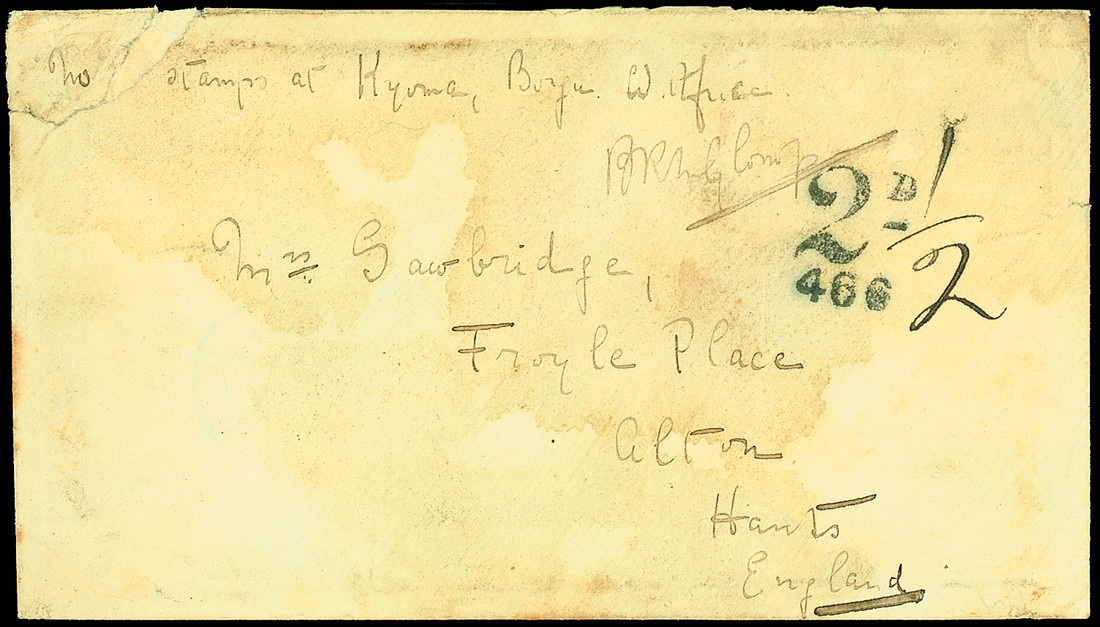 No stamps at Kyoma, W. Africa.
2D
1/2
466
Mrs. Sawbridge,
Froyle Place
Alton
Hants
England